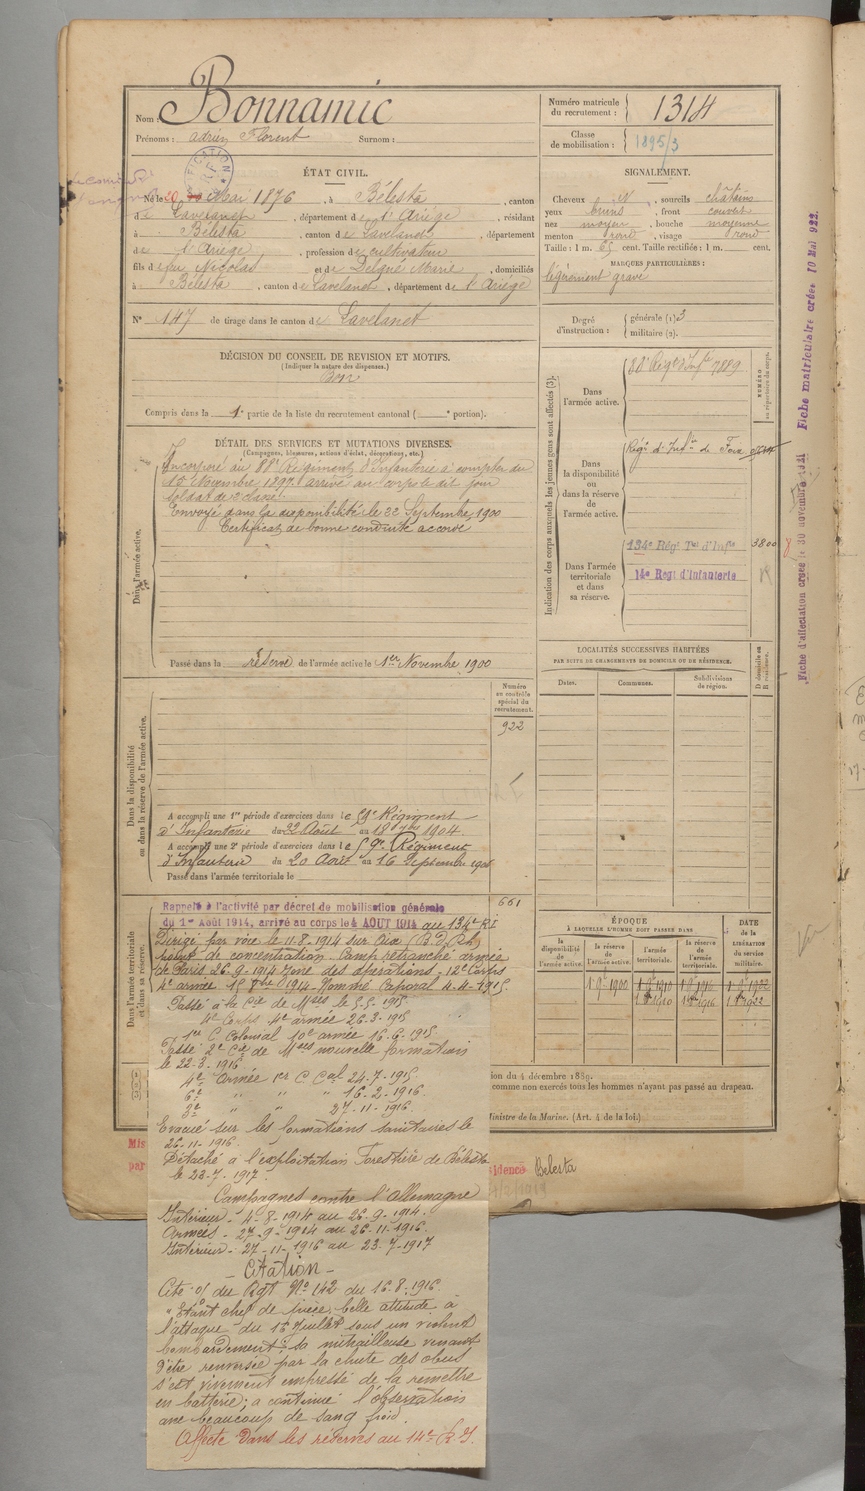 Nom : Bonnamic
Prénoms : Adrien Florent Surnom :
Numéro matricule du recrutement : 1314
Classe de mobilisation : 1895/3
ÉTAT CIVIL.
Né le 20 Mai 1876, à Bélesta, canton
de Lavelanet, département de l'Ariège, résidant
à Bélesta, canton de Lavelanet, département
de l'Ariège, profession de cultivateur
fils de feu Nicolas et de Delqué Marie, domiciliés
à Bélesta, canton de Lavelanet, département de l'Ariège
N° 147 de tirage dans le canton de Lavelanet
SIGNALEMENT.
Cheveux N, sourcils châtains
yeux bruns, front couvert
nez moyen, bouche moyenne
menton rond, visage rond
Taille : 1 m. 65 cent. Taille rectifiée : 1 m. cent.
MARQUES PARTICULIÈRES :
légèrement gravé
Degré d'instruction : générale (1) 3
militaire (2).
DÉCISION DU CONSEIL DE REVISION ET MOTIFS.
(Indiquer la nature des dispenses.)
Bon
Compris dans la 1e partie de la liste du recrutement cantonal ( e portion).
DÉTAIL DES SERVICES ET MUTATIONS DIVERSES.
(Campagnes, blessures, actions d'éclat, décorations, etc.)
Dans l'armée active.
Incorporé au 88e Régiment d'Infanterie à compter du
15 Novembre 1897 arrivé au corps le dit jour
soldat de 2e classe.
Envoyé dans la disponibilité le 22 Septembre 1900
Certificat de bonne conduite accordé
Passé dans la réserve de l'armée active le 1er Novembre 1900
Indication des corps auxquels les jeunes gens sont affectés (3).
NUMÉRO au répertoire du corps.
Dans l'armée active.
88e Régt d'Infie 7889
Dans la disponibilité ou dans la réserve de l'armée active.
Régt d'Infie de Foix
Dans l'armée territoriale et dans sa réserve.
134e Régt Tal d'Infie 3800
14e Régt d'Infanterie
LOCALITÉS SUCCESSIVES HABITÉES
PAR SUITE DE CHANGEMENTS DE DOMICILE OU DE RÉSIDENCE.
Dates. Communes. Subdivisions de région. D domicile ou R résidence.
Fiche matriculaire créée 10 Mai 922
Fiche d'affectation créée le 30 novembre 1921
Numéro au contrôle spécial du recrutement.
922
Dans la disponibilité ou dans la réserve de l'armée active.
A accompli une 1re période d'exercices dans le 59e Régiment
d'Infanterie du 22 Août au 18 7bre 1904.
A accompli une 2e période d'exercices dans le 59e Régiment
d'Infanterie du 20 Août au 16 Septembre
Passé dans l'armée territoriale le
661
Dans l'armée territoriale et dans sa réserve.
Rappelé à l'activité par décret de mobilisation générale
du 1er Août 1914, arrivé au corps le 4 AOUT 1914 au 134e RI
Dirigé par voie le 11-8-1914 sur Aix (B. d. Rh)
point de concentration. Camp retranché armée
de Paris 26-9-1914 Zone des opérations 12e Corps
4e armée 15 1914 Nommé Caporal 4-4-1915.
Passé à la Cie de Mses le 5-5-1915
4e Corps 4e armée 26-3-1915
1er C. Colonial 10e armée 16-6-1915
Passé 2e Cie de Mses nouvelle formation
le 22-3-1916
4e Armée 1er C. Cal 24-7-1915
6e " " " 16-2-1916.
3e " " 27-11-1916.
Evacué sur les formations sanitaires le
26-11-1916.
Détaché à l'exploitation Forestière de Bélesta
le 23-7-1917.
Campagnes contre l'Allemagne
Intérieur - 4-8-1914 au 26-9-1914.
Armées - 27-9-1914 au 26-11-1916.
Intérieur - 27-11-1916 au 23-7-1917
- Citation -
Cité o/ du Rgt N° 142 du 16-8-1916.
" Etant chef de pièce, belle attitude à
l'attaque du 15 Juillet sous un violent
bombardement ; sa mitrailleuse venant
d'être renversée par la chute des obus
s'est vivement empressé de la remettre
en batterie ; a continué l'observation
avec beaucoup de sang froid.
Affecté dans les réserves au 14e R.I.
ÉPOQUE
À LAQUELLE L'HOMME DOIT PASSER DANS
DATE DE LA LIBÉRATION du service militaire.
la disponibilité de l'armée active. la réserve de l'armée active. l'armée territoriale. la réserve de l'armée territoriale.
1 9 1900 1 9 1910 1 9 1916 1 9 1922
1 8 1910 1 8 1916 1 8 1922
ion du 4 décembre 1889.
comme non exercés tous les hommes n'ayant pas passé au drapeau.
Ministre de la Marine. (Art. 4 de la loi.)
Mis
par
sidence Belesta